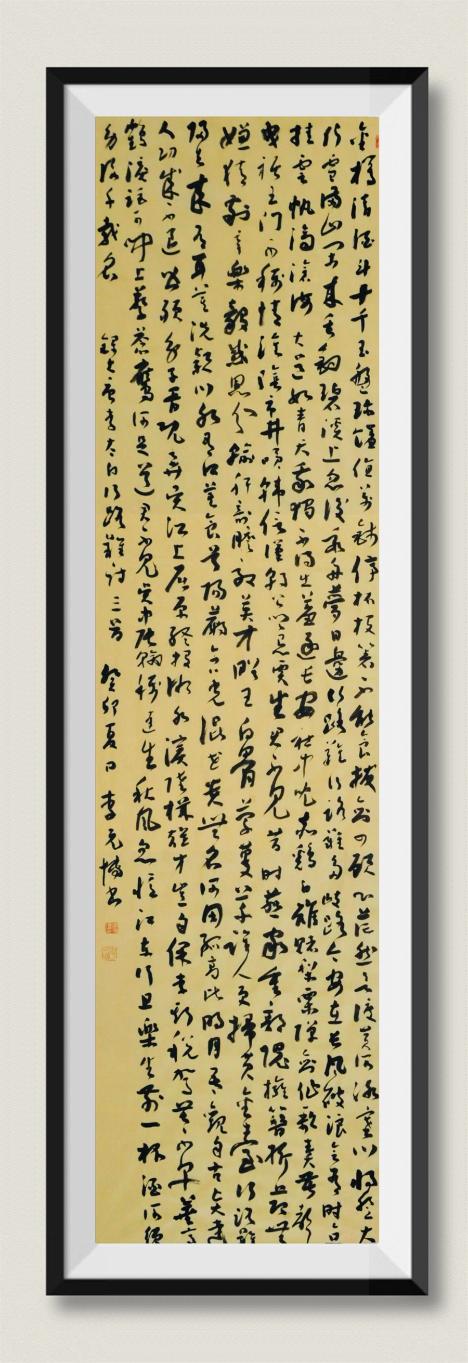 金樽清酒斗十千玉盤珍饈值萬錢停杯投箸不能食拔劍四顧心茫然欲渡黃河冰塞川將登太
行雪滿山閒來垂釣碧溪上忽復乘舟夢日邊行路難行路難多歧路今安在長風破浪會有時直
掛雲帆濟滄海 大道如青天我獨不得出羞逐長安社中兒赤雞白雉賭梨栗彈劍作歌奏苦聲
曳裾王門不稱情淮陰市井笑韓信漢朝公卿忌賈生君不見昔時燕家重郭隗擁篲折節無
嫌猜劇辛樂毅感恩分輸肝剖膽效英才昭王白骨縈蔓草誰人更掃黃金臺行路難
歸去來 有耳莫洗潁川水有口莫食首陽蕨含光混世貴無名何用孤高比明月吾觀自古賢達
人功成不退皆殞身子胥既棄吳江上屈原終投湘水濱陸機雄才豈自保李斯稅駕苦不早華亭
鶴唳詎可聞上蔡蒼鷹何足道君不見吳中張翰稱達生秋風忽憶江東行且樂生前一杯酒何須
身後千載名 錄大唐李太白行路難詩三首 癸卯夏日 李元博书